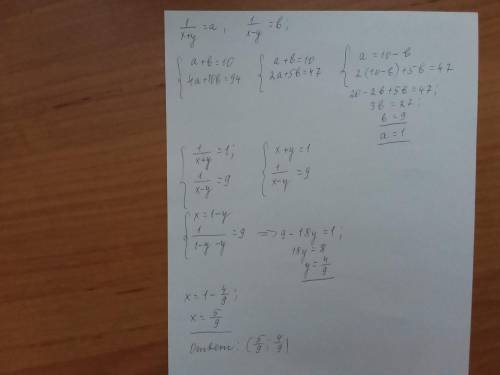 1/(x+y) = a, 1/(x-y) = b;
{ a+b=10 { a+b=10 { a=10-b
{ 4a+10b=94 { 2a+5b=47 { 2(10-b)+5b=47
20-2b+5b=47;
3b=27;
b=9
a=1
{ 1/(x+y) = 1; { x+y=1
{ 1/(x-y) = 9 { 1/(x-y) = 9
{ x=1-y
{ 1/(1-y-y) = 9 => 9-18y=1;
18y=8
y=4/9
x=1-4/9;
x=5/9
Ответ: (5/9; 4/9)